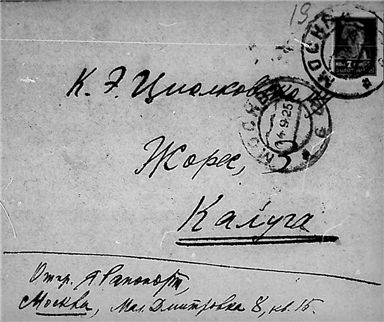 19
МОСКВА
7
К. Э. Циолковскому
МОСКВА
4.9.25
Жорес, 3
Калуга
Отпр. Я Рапопорт,
Москва, Мал. Дмитровка 8, кв. 15.